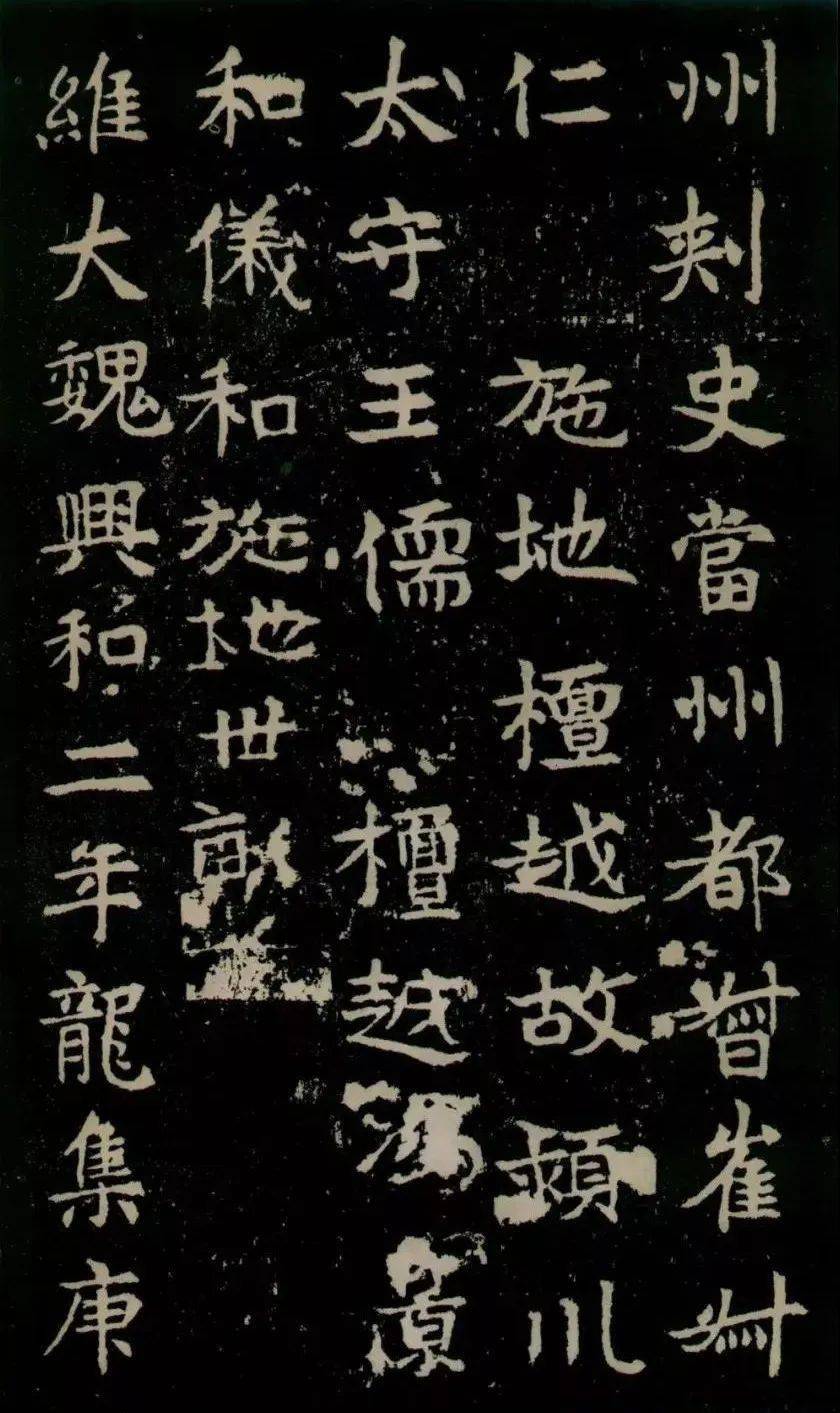 州刾史當州都督崔叔
仁 施地檀越故潁川
太守王儒 檀越
和儀和施地丗畝
維大魏興和二年龍集庚